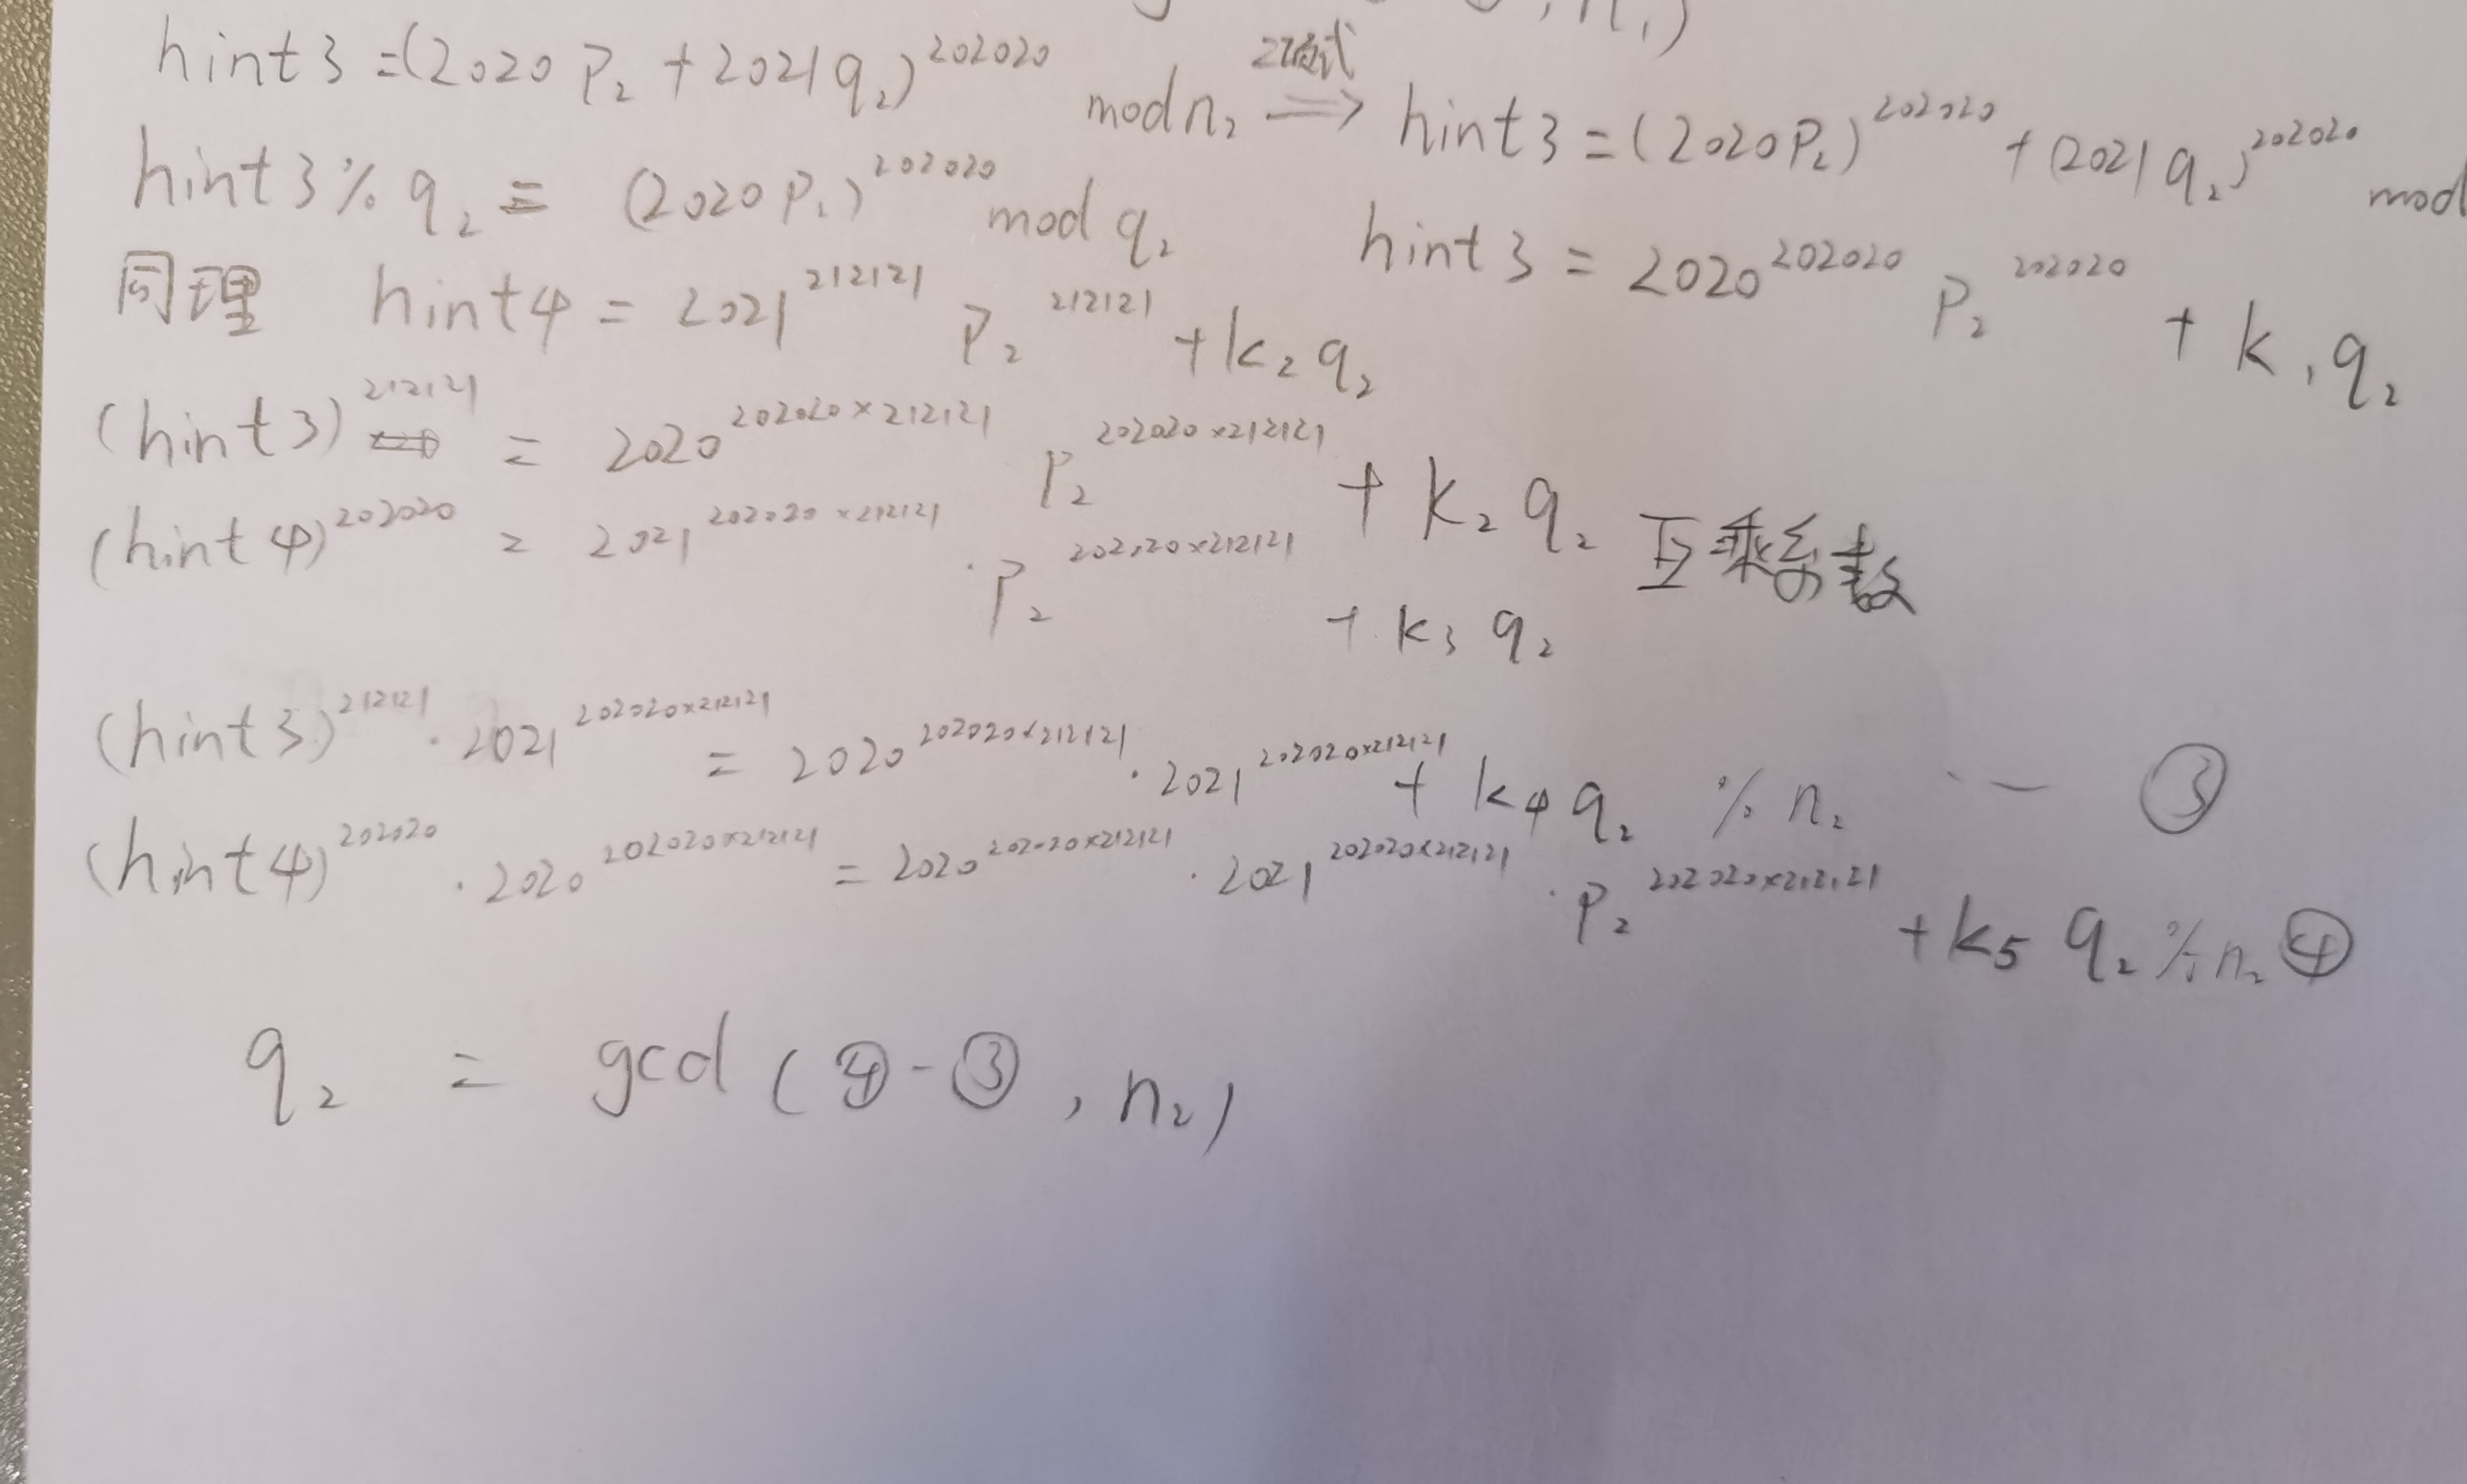 , n₁)
hint3 =(2020 P₂ + 2021 q₂)^202020 mod n₂ 二项式 ⟹ hint3 = (2020P₂)^202020 + (2021 q₂)^202020 mod
hint3 % q₂ = (2020 P₂)^202020 mod q₂
hint3 = 2020^202020 P₂^202020 + k₁q₂
同理 hint4 = 2021^212121 P₂^212121 + k₂q₂
(hint3)^212121 = 2020^202020×212121 P₂^202020×212121 + k₂q₂ 互乘系数
(hint4)^202020 = 2021^202020×212121 · P₂^202020×212121 + k₃q₂
(hint3)^212121 · 2021^202020×212121 = 2020^202020×212121 · 2021^202020×212121 + k₄q₂ % n₂ -- ③
(hint4)^202020 · 2020^202020×212121 = 2020^202020×212121 · 2021^202020×212121 · P₂^202020×212121 + k₅ q₂ % n₂ ④
q₂ = gcd ( ④ - ③ , n₂)